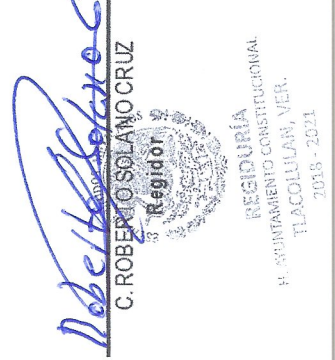 Roberto Solano C
C. ROBERTO SOLANO CRUZ
Regidor
REGIDURÍA
H. AYUNTAMIENTO CONSTITUCIONAL
TLACOLULAN, VER.
2018 - 2021